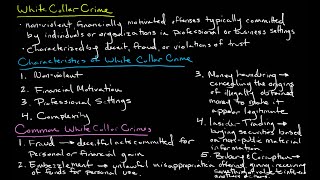 White Collar Crime
• non-violent financially motivated offenses typically committed
by individuals or organizations in professional or business settings
• characterised by deceit, fraud, or violations of trust
Characteristics of White Collar Crime
1. Non-violent
2. Financial Motivation
3. Professional Settings
4. Complexity
Common White Collar Crimes
1. Fraud → deceitful acts committed for
personal or financial gain
2. Embezzlement → unlawful misappropriation
of funds for personal use.
3. Money laundering →
concealing the origins
of illegally obtained
money to make it
appear legitimate.
4. Insider Trading →
buying securities based
on non-public material
information.
5. Bribery & Corruption →
offering, giving, receiving
something of value to influence